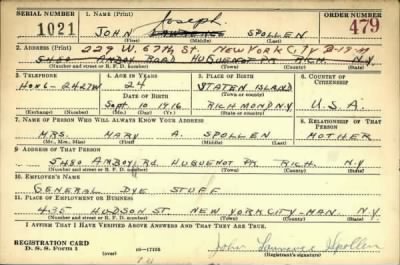 SERIAL NUMBER 1. NAME (Print) ORDER NUMBER
1021 JOHN Joseph LAWRENCE SPOLLEN 479
(First) (Middle) (Last)
2. ADDRESS (Print) 229 W. 67th St. NEW YORK CITY
5480 AMBOY ROAD HUGUENOT PK RICH. N.Y.
(Number and street or R. F. D. number) (Town) (County) (State)
3. TELEPHONE 4. AGE IN YEARS 5. PLACE OF BIRTH 6. COUNTRY OF CITIZENSHIP
24 STATEN ISLAND
DATE OF BIRTH (Town or county)
HON 6-2427W Sept. 10 1916 RICHMOND N.Y. U.S.A.
(Exchange) (Number) (Mo.) (Day) (Yr.) (State or country)
7. NAME OF PERSON WHO WILL ALWAYS KNOW YOUR ADDRESS 8. RELATIONSHIP OF THAT PERSON
MRS. MARY A. SPOLLEN MOTHER
(Mr., Mrs., Miss) (First) (Middle) (Last)
9. ADDRESS OF THAT PERSON
5480 AMBOY Rd. HUGUENOT PK RICH. N.Y.
(Number and street or R. F. D. number) (Town) (County) (State)
10. EMPLOYER'S NAME
GENERAL DYE STUFF
11. PLACE OF EMPLOYMENT OR BUSINESS
435 HUDSON ST NEW YORK CITY-MAN. N.Y.
(Number and street or R. F. D. number) (Town) (County) (State)
I AFFIRM THAT I HAVE VERIFIED ABOVE ANSWERS AND THAT THEY ARE TRUE.
REGISTRATION CARD
D. S. S. Form 1 (over) 16-17105 John Lawrence Spollen
(Registrant's signature)